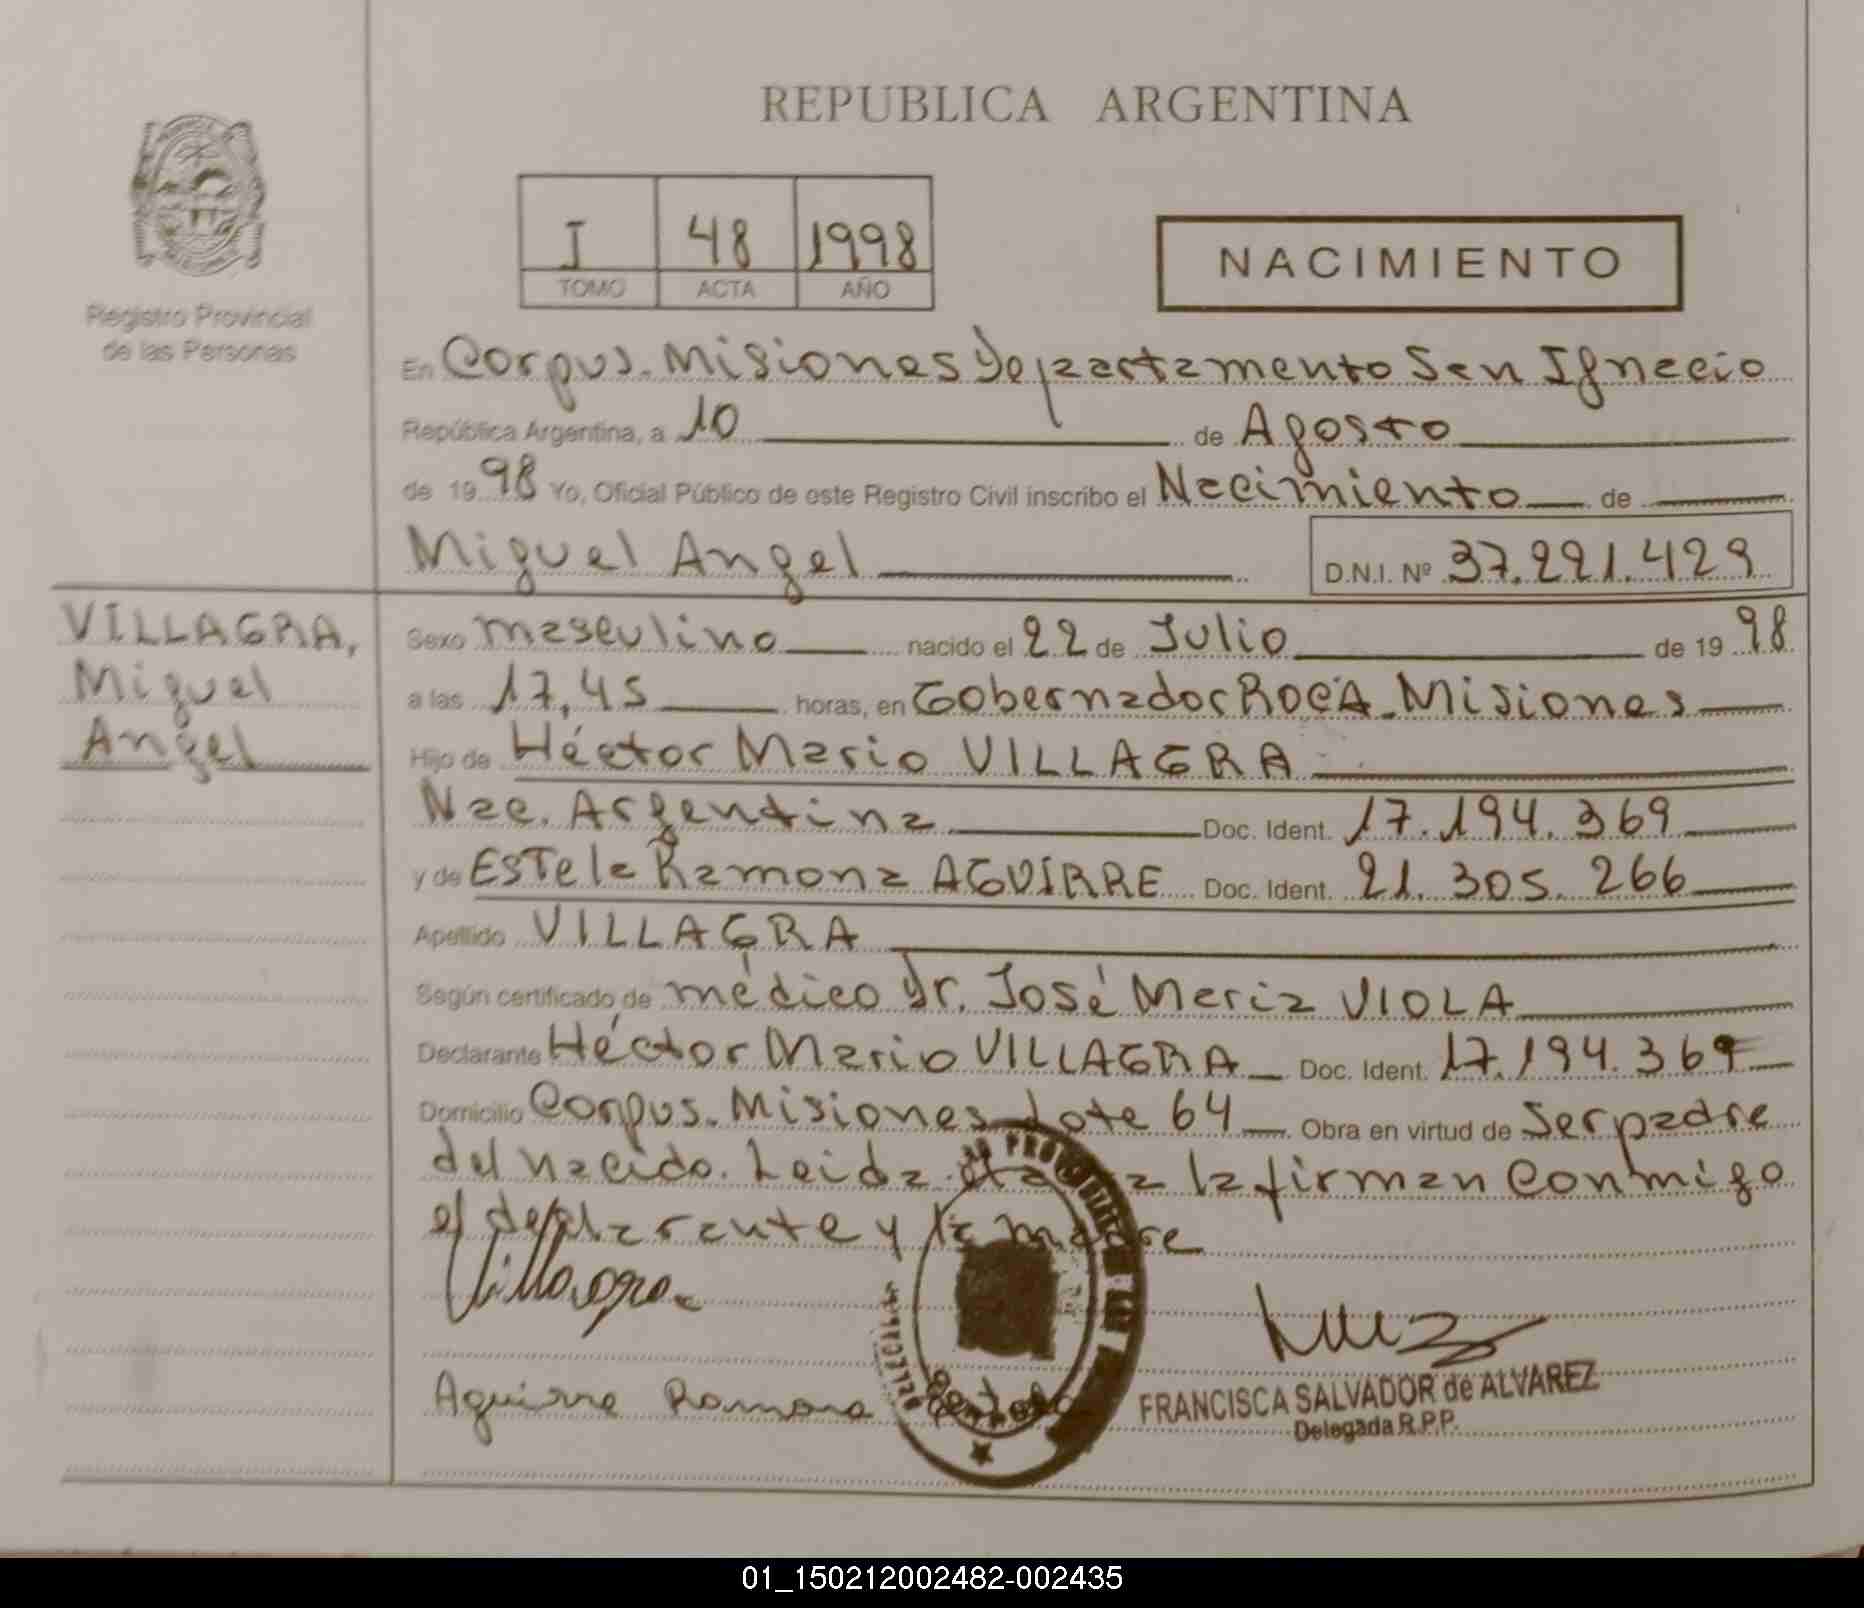 REPUBLICA ARGENTINA
I 48 1998
TOMO ACTA AÑO
NACIMIENTO
Registro Provincial
de las Personas
En Corpus. Misiones Departamento San Ignacio
República Argentina, a 10 de Agosto
de 1998 Yo, Oficial Público de este Registro Civil inscribo el Nacimiento de
Miguel Angel D.N.I. Nº 37.221.429
VILLAGRA,
Miguel
Angel
Sexo masculino nacido el 22 de Julio de 1998
a las 17,45 horas, en Gobernador ROCA. Misiones
Hijo de Héctor Mario VILLAGRA
Nac. Argentina Doc. Ident. 17.194.369
y de Estela Ramona AGUIRRE Doc. Ident. 21.305.266
Apellido VILLAGRA
Según certificado de médico Dr. José Maria VIOLA
Declarante Héctor Mario VILLAGRA Doc. Ident. 17.194.369
Domicilio Corpus. Misiones Lote 64 Obra en virtud de Ser padre
del nacido. Leida el acta la firman conmigo
el declarante y la madre
Villagra
Aguirre Ramona
FRANCISCA SALVADOR de ALVAREZ
Delegada R.P.P.
01_150212002482-002435